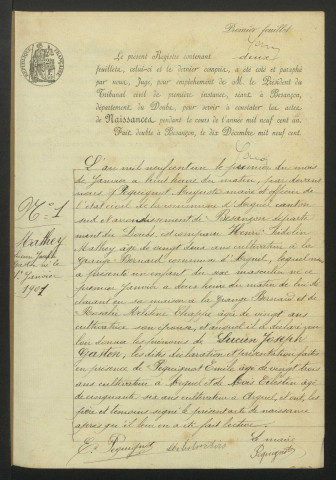 Premier feuillet
Le présent Registre contenant deux
feuillets, celui-ci et le dernier compris, a été coté et paraphé
par nous, Juge, pour empêchement de M. le Président du
Tribunal civil de première instance, séant à Besançon,
département du Doubs, pour servir à constater les actes
de Naissances pendant le cours de l'année mil neuf cent un.
Fait, double à Besançon, le dix Décembre mil neuf cent.
N° 1
Mathey
Lucien Joseph
Gaston né le
1er Janvier
1901
L'an mil neuf cent un le premier du mois
de Janvier à heures du matin, par devant
nous Piquignot Auguste maire et officier de
l'état civil de la commune d'Arguel canton
sud et arrondissement de Besançon département
du Doubs est comparu Henri Fidelin
Mathey âgé de vingt deux ans cultivateur à la
Grange Bernard commune d'Arguel, lequel nous
a présenté un enfant du sexe masculin né ce
premier Janvier à deux heures du matin de lui déclarant
en sa maison à la Grange Bernard et de
Rosalie âgée de vingt ans
cultivatrice son épouse, et auquel il a déclaré vouloir
donner les prénoms de Lucien Joseph
Gaston, les dites déclaration et présentation faites
en présence de Piquignot Emile âgé de vingt trois
ans cultivateur à Arguel et de Célestin âgé
de cinquante six ans cultivateur à Arguel, et ont, les
père et témoins signé le présent acte de naissance
après que il leur en a été fait lecture.
E. Piquignot
Le maire
Piquignot